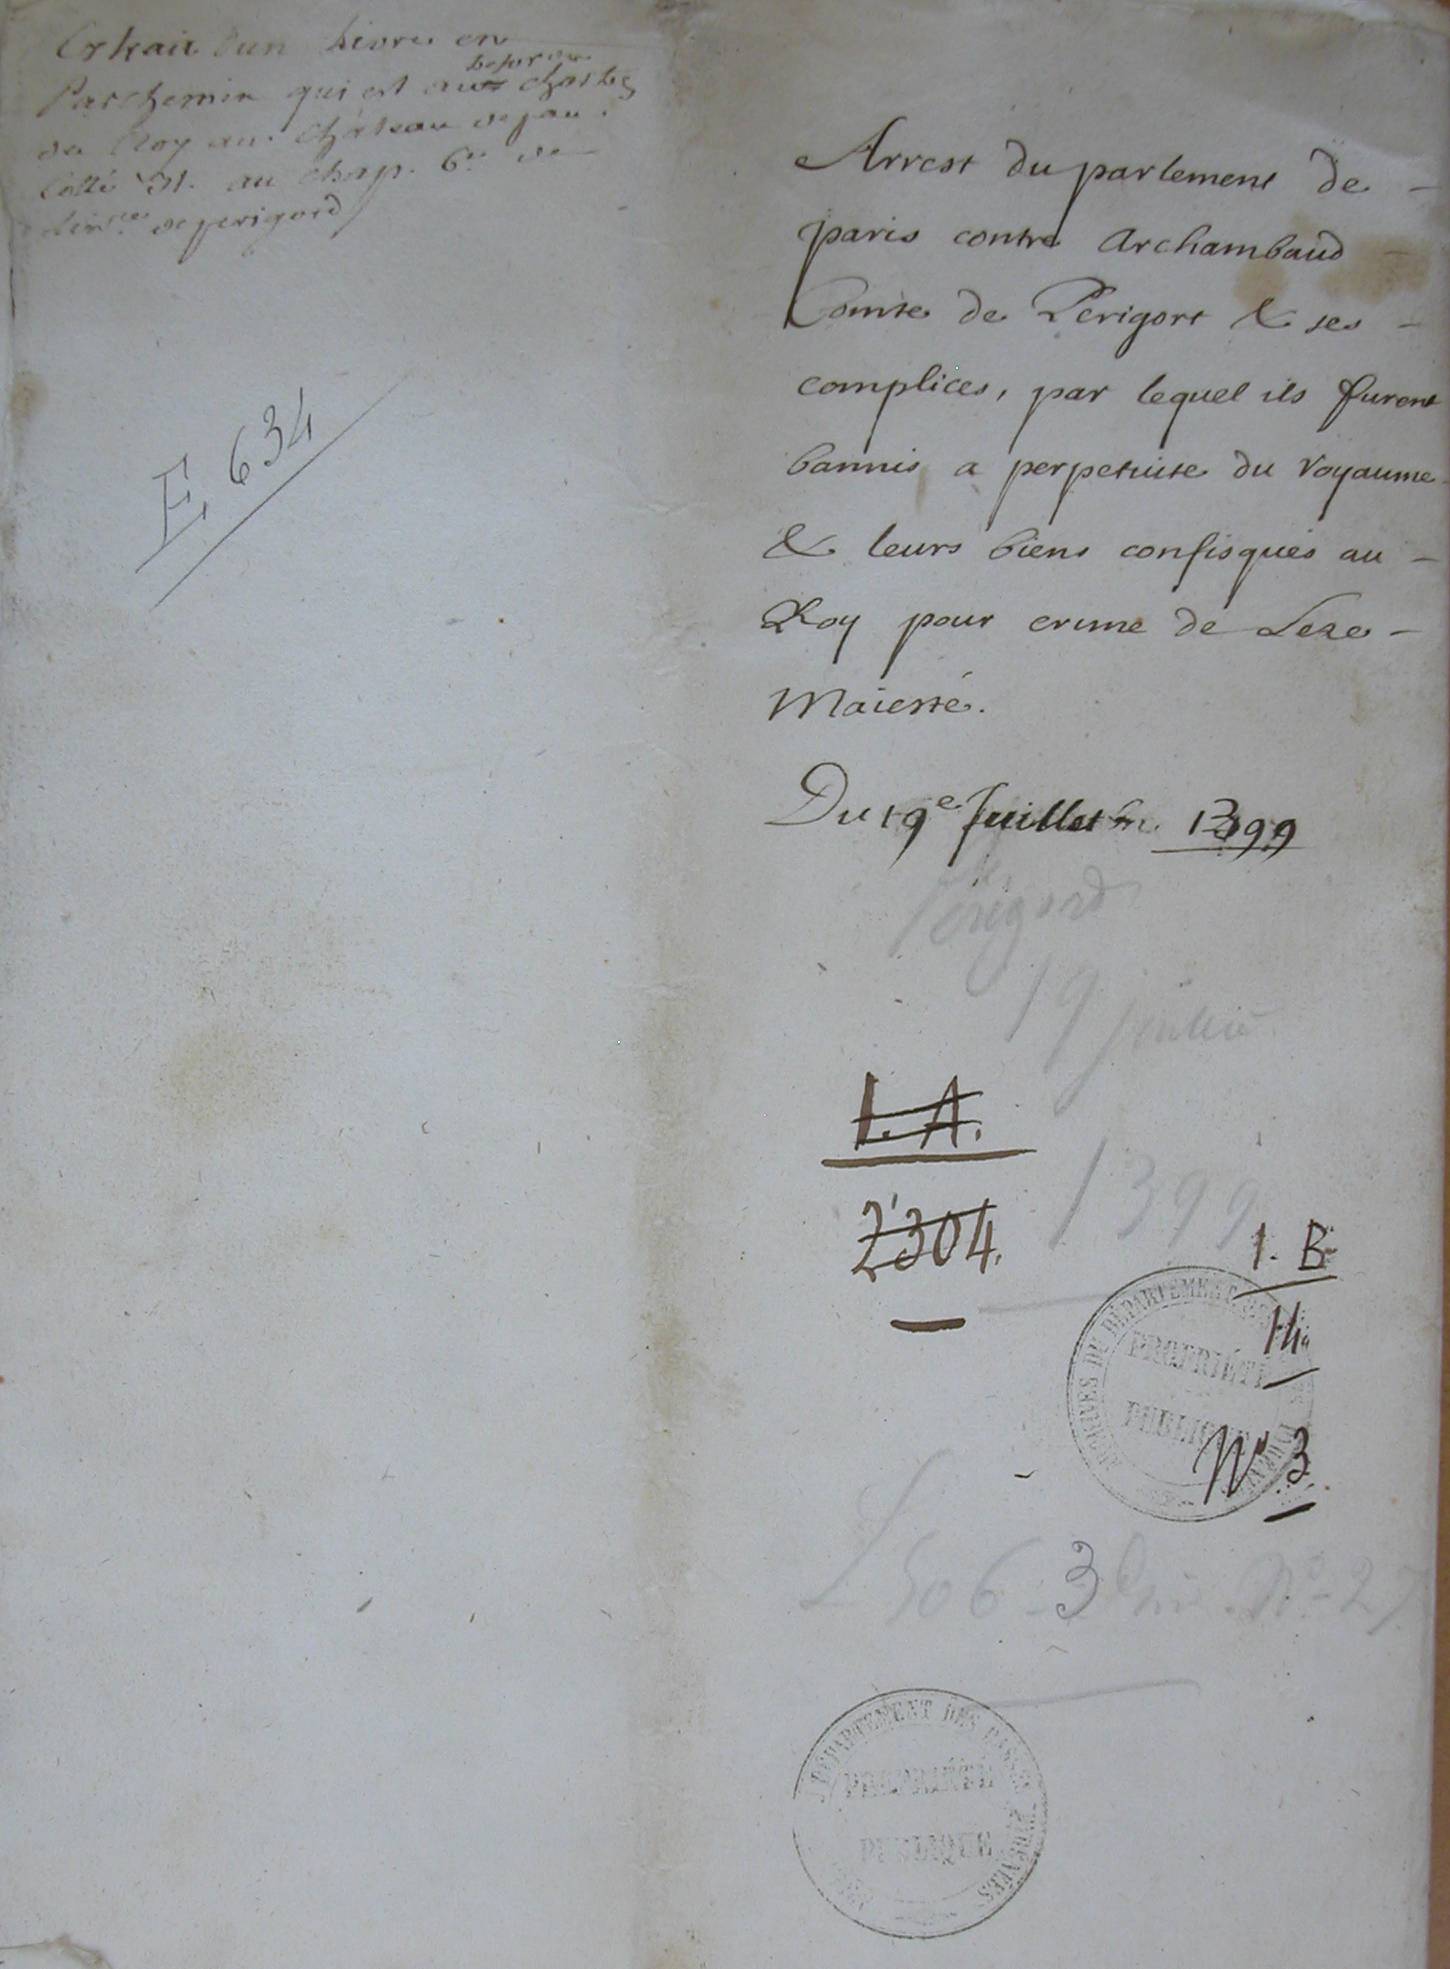 Extrait d'un livre en
Parchemin qui est au tresor des chartes
du Roy au Château de pau
Cotté A. au chap. 6.e de
de perigord
E 634
Arrest du parlement de
paris contre Archambaud
Comte de Perigort & ses
complices, par lequel ils furent
bannis a perpetuite du royaume
& leurs biens confisques au
Roy pour crime de Leze
Maiesté.
Du 19e Juillet 1399
Périgord
19 juillet
1. A.
1399
2304.
1. B
14
ARCHIVES DU DÉPARTEMENT DES
PROPRIÉTÉ
PUBLIQUE
N° 3
506 3 N° 27
DÉPARTEMENT DES BASSES PYRÉNÉES
PROPRIÉTÉ
PUBLIQUE